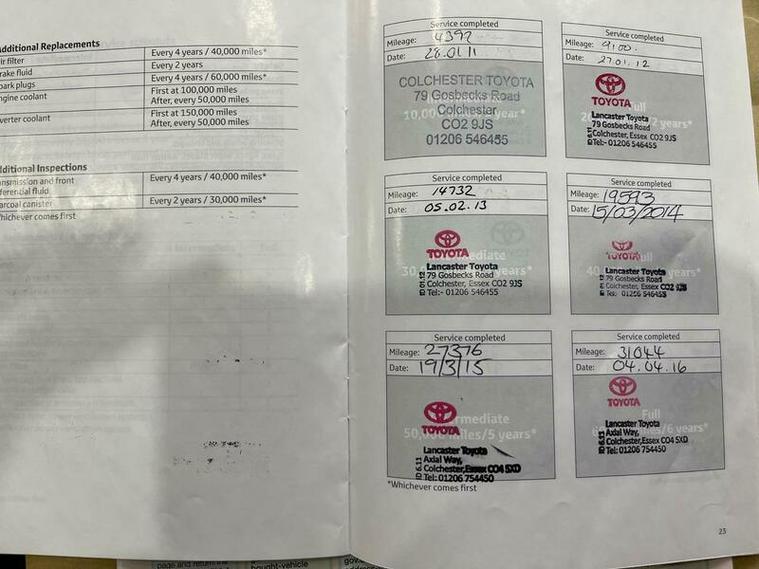 Additional Replacements
ir filter Every 4 years / 40,000 miles*
rake fluid Every 2 years
park plugs Every 4 years / 60,000 miles*
ngine coolant First at 100,000 miles
After, every 50,000 miles
verter coolant First at 150,000 miles
After, every 50,000 miles
dditional Inspections
ansmission and front Every 4 years / 40,000 miles*
ferential fluid
arcoal canister Every 2 years / 30,000 miles*
hichever comes first
Service completed
Mileage: 4397
Date: 28.01 11
COLCHESTER TOYOTA
79 Gosbecks Road
Colchester
10,00 year*
CO2 9JS
01206 546455
Service completed
Mileage: 9100.
Date: 27.01.12
TOYOTA
Full
Lancaster Toyota
79 Gosbecks Road
2 years*
Colchester, Essex CO2 9JS
Tel:- 01206 546455
Service completed
Mileage: 14732
Date: 05.02.13
TOYOTA
ediate
Lancaster Toyota
30 79 Gosbecks Road years*
Colchester, Essex CO2 9JS
Tel:- 01206 546455
Service completed
Mileage: 19593
Date: 15/03/2014
TOYOTA
ull
Lancaster Toyota
40 79 Gosbecks Road years*
Colchester, Essex CO2
Tel: 01206 546455
Service completed
Mileage: 27376
Date: 19/3/15
TOYOTA
rmediate
50,0 miles/5 years*
Lancaster Toyota
Axial Way,
Colchester,Essex CO4 5XD
Tel: 01206 754450
Service completed
Mileage: 31044
Date: 04.04.16
TOYOTA
Full
Lancaster Toyota
es/6 years*
Axial Way,
Colchester,Essex CO4 5XD
Tel: 01206 754450
*Whichever comes first
23
page and return the
bought-vehicle
gov.